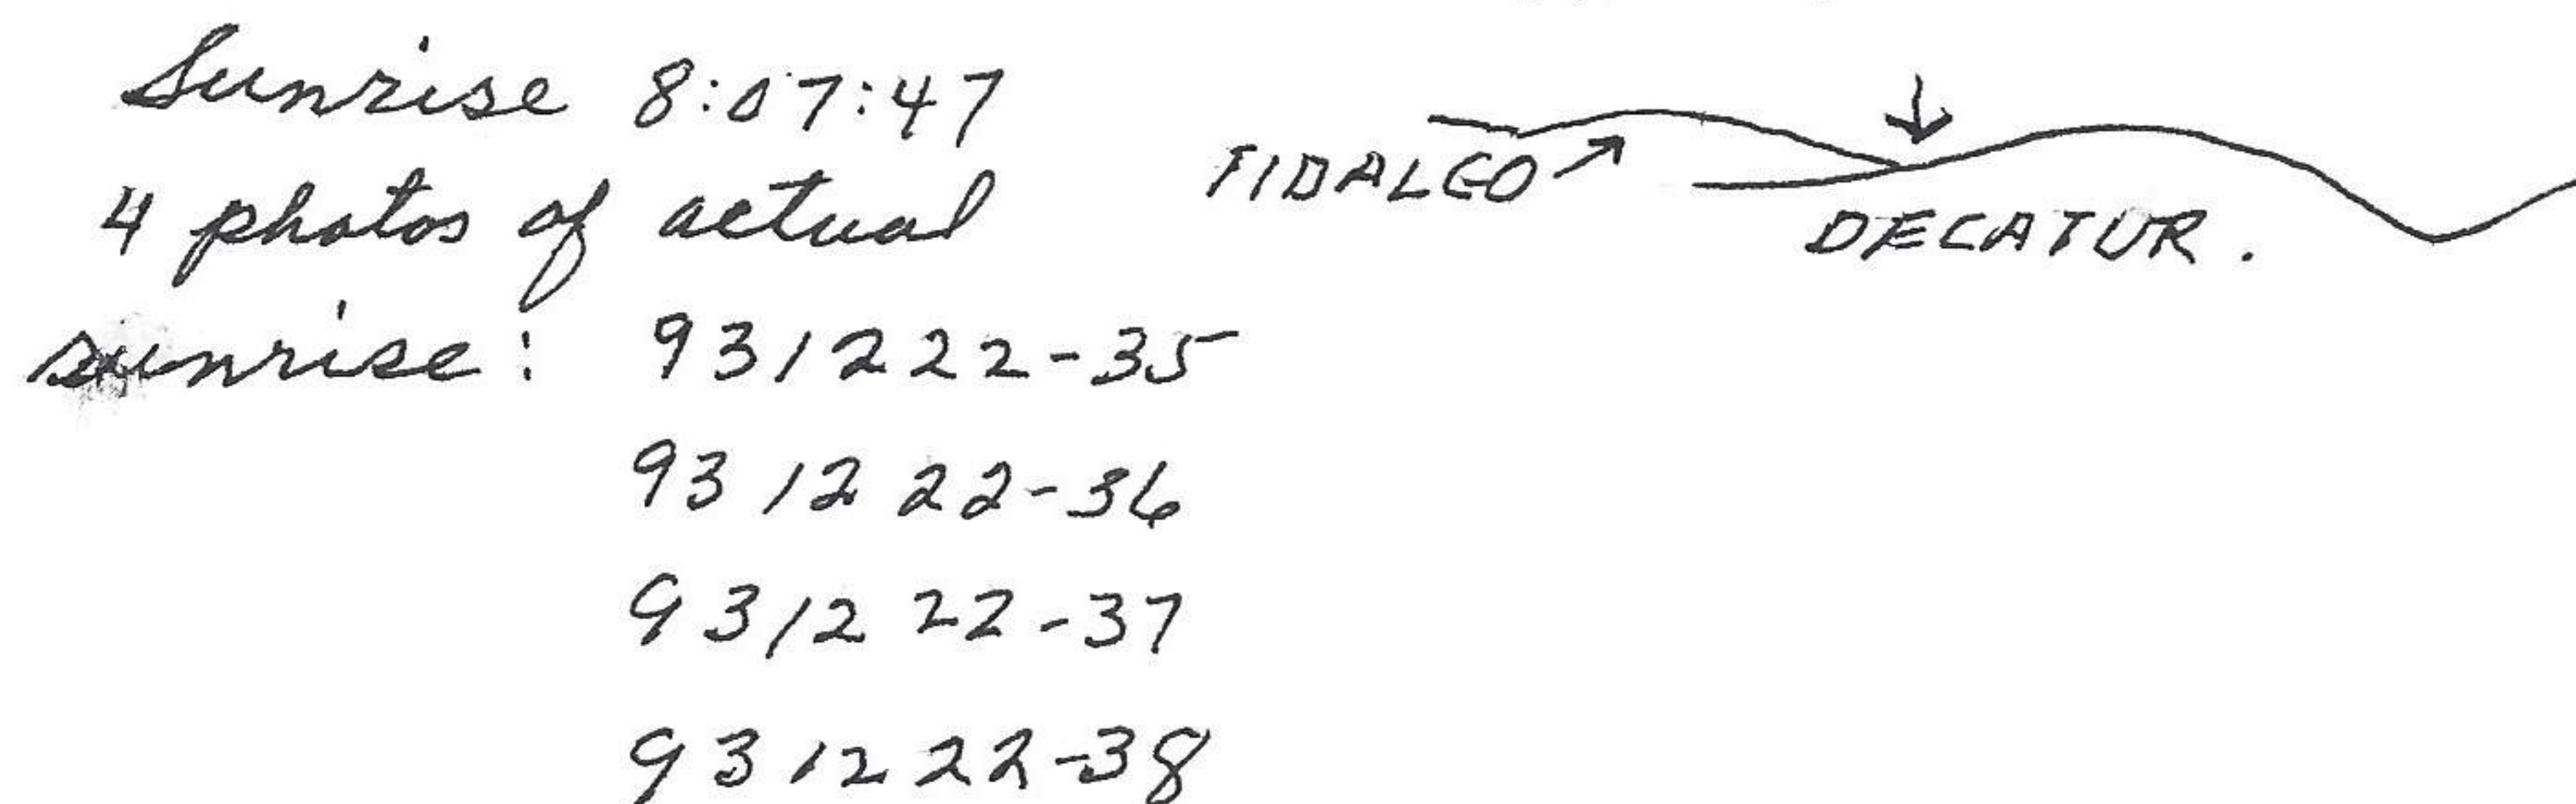 Sunrise 8:07:47
4 photos of actual
sunrise: 931222-35
93 12 22-36
93 12 22-37
93 12 22-38
FIDALGO
DECATUR.